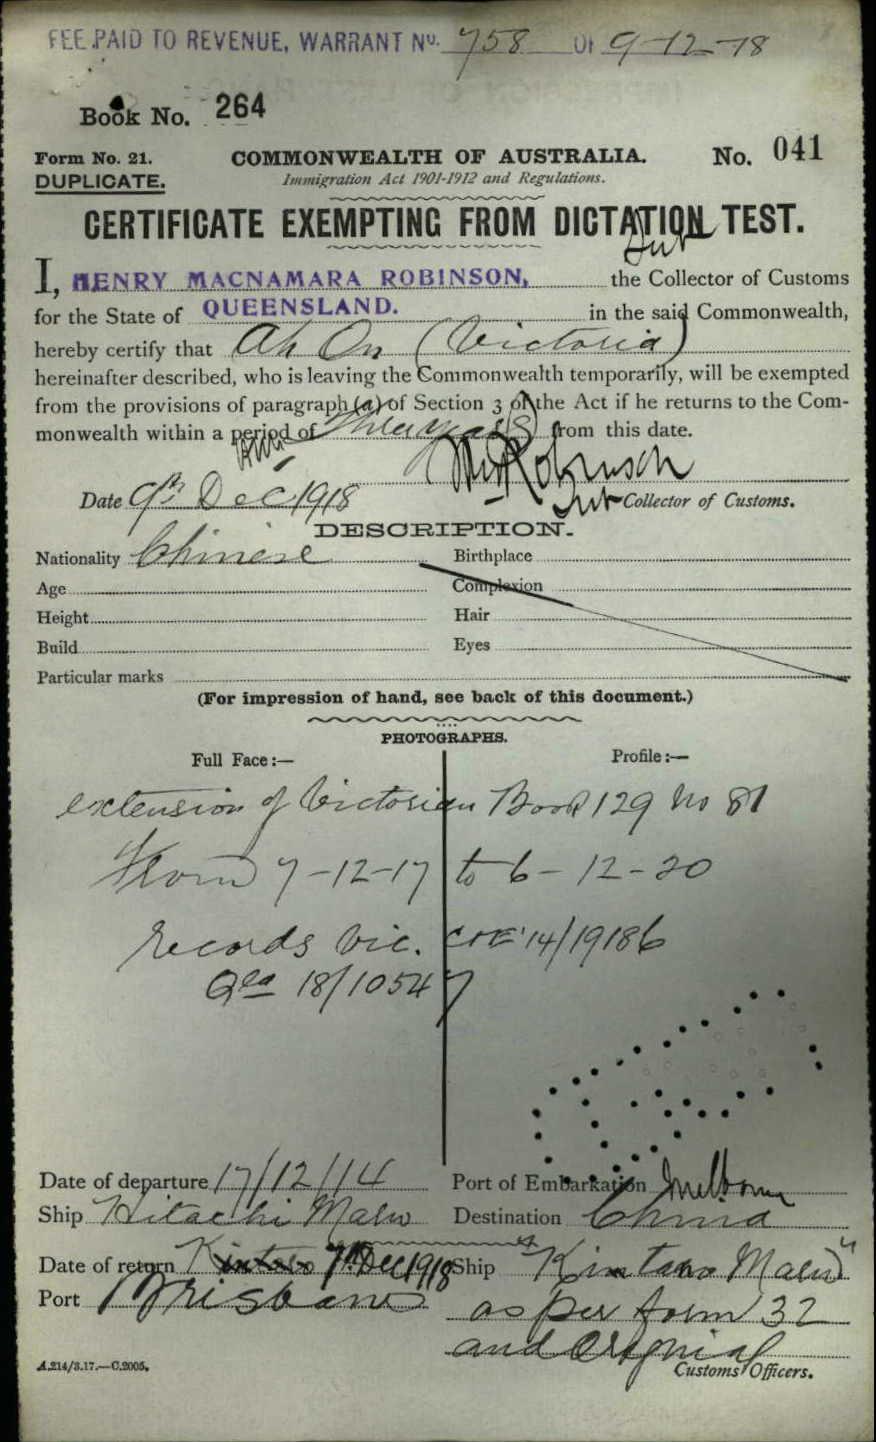 FEE PAID TO REVENUE, WARRANT No. 758 OF 9-12-18
Book No. 264
Form No. 21. COMMONWEALTH OF AUSTRALIA. No. 041
DUPLICATE. Immigration Act 1901-1912 and Regulations.
CERTIFICATE EXEMPTING FROM DICTATION TEST.
Sub
I, HENRY MACNAMARA ROBINSON, the Collector of Customs
for the State of QUEENSLAND. in the said Commonwealth,
hereby certify that Ah On (Victoria)
hereinafter described, who is leaving the Commonwealth temporarily, will be exempted
from the provisions of paragraph (a) of Section 3 of the Act if he returns to the Com-
monwealth within a period of Three years (3) from this date.
Robinson
Date 9th Dec 1918 Sub Collector of Customs.
DESCRIPTION.
Nationality Chinese Birthplace
Age Complexion
Height Hair
Build Eyes
Particular marks
(For impression of hand, see back of this document.)
PHOTOGRAPHS.
Full Face:— Profile:—
extension of Victorian Book 129 No 81
From 7-12-17 to 6-12-20
records Vic. C&E 14/19186
Qld 18/10547
Date of departure 17/12/14 Port of Embarkation Melbourne
Ship Hitachi Maru Destination China
Date of return 7th Dec 1918 Ship "Kintaro Maru"
Port Brisbane as per form 32
and Original
Customs Officers.
A.214/3.17.—C.2005.